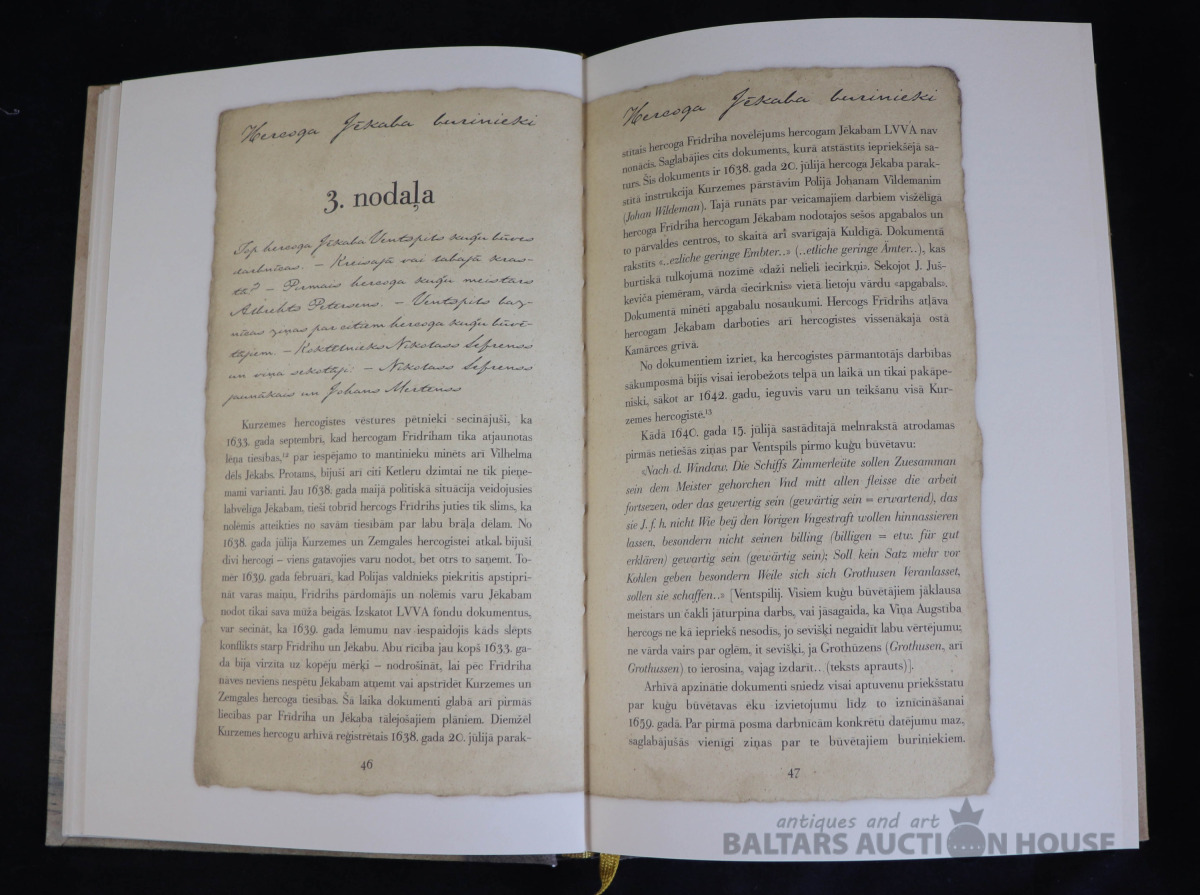 Hercoga Jēkaba burinieki
3. nodaļa
Top hercoga Jēkaba Ventspils kuģu būves
darbnīcas. – Kreisajā vai labajā kras-
tā? – Pirmais hercoga kuģu meistars
Albrehts Petersens. – Ventspils baz-
nīcas ziņas par citiem hercoga kuģu būvē-
tājiem. – Koktēlnieks Nikolass Sefrenss
un viņa sekotāji: – Nikolass Sefrenss
jaunākais un Johans Mertenss
Kurzemes hercogistes vēstures pētnieki secinājuši, ka
1633. gada septembrī, kad hercogam Frīdriham tika atjaunotas
lēņa tiesības,¹² par iespējamo to mantinieku minēts arī Vilhelma
dēls Jēkabs. Protams, bijuši arī citi Ketleru dzimtai ne tik pieņe-
mami varianti. Jau 1638. gada maijā politiskā situācija veidojusies
labvēlīga Jēkabam, tieši tobrīd hercogs Frīdrihs juties tik slims, ka
nolēmis atteikties no savām tiesībām par labu brāļa dēlam. No
1638. gada jūlija Kurzemes un Zemgales hercogistei atkal bijuši
divi hercogi – viens gatavojies varu nodot, bet otrs to saņemt. To-
mēr 1639. gada februārī, kad Polijas valdnieks piekritis apstipri-
nāt varas maiņu, Frīdrihs pārdomājis un nolēmis varu Jēkabam
nodot tikai sava mūža beigās. Izskatot LVVA fondu dokumentus,
var secināt, ka 1639. gada lēmumu nav iespaidojis kāds slēpts
konflikts starp Frīdrihu un Jēkabu. Abu rīcība jau kopš 1633. ga-
da bija virzīta uz kopēju mērķi – nodrošināt, lai pēc Frīdriha
nāves neviens nespētu Jēkabam atņemt vai apstrīdēt Kurzemes un
Zemgales hercoga tiesības. Šā laika dokumenti glabā arī pirmās
liecības par Frīdriha un Jēkaba tālejošajiem plāniem. Diemžēl
Kurzemes hercogu arhīvā reģistrētais 1638. gada 20. jūlijā parak-
46
Hercoga Jēkaba burinieki
stītais hercoga Frīdriha novēlējums hercogam Jēkabam LVVA nav
nonācis. Saglabājies cits dokuments, kurā atstāstīts iepriekšējā sa-
turs. Šis dokuments ir 1638. gada 20. jūlijā hercoga Jēkaba parak-
stītā instrukcija Kurzemes pārstāvim Polijā Johanam Vildemanim
(Johan Wildeman). Tajā runāts par veicamajiem darbiem visžēlīgā
hercoga Frīdriha hercogam Jēkabam nodotajos sešos apgabalos un
to pārvaldes centros, to skaitā arī svarīgajā Kuldīgā. Dokumentā
rakstīts «..ezliche geringe Embter..» (..etliche geringe Ämter..), kas
burtiskā tulkojumā nozīmē «daži nelieli iecirkņi». Sekojot J. Juš-
keviča piemēram, vārda «iecirknis» vietā lietoju vārdu «apgabals».
Dokumentā minēti apgabalu nosaukumi. Hercogs Frīdrihs atļāva
hercogam Jēkabam darboties arī hercogistes vissenākajā ostā
Kamārces grīvā.
No dokumentiem izriet, ka hercogistes pārmantotājs darbības
sākumposmā bijis visai ierobežots telpā un laikā un tikai pakāpe-
niski, sākot ar 1642. gadu, ieguvis varu un teikšanu visā Kur-
zemes hercogistē.¹³
Kādā 1640. gada 15. jūlijā sastādītajā melnrakstā atrodamas
pirmās netiešās ziņas par Ventspils pirmo kuģu būvētavu:
«Nach d. Windaw. Die Schiffs Zimmerleüte sollen Zuesamman
sein dem Meister gehorchen Vnd mitt allen fleisse die arbeit
fortsezen, oder das gewertig sein (gewärtig sein = erwartend), das
sie J. f. h. nicht Wie beÿ den Vorigen Vngestraft wollen hinnassieren
lassen, besondern nicht seinen billing (billigen = etw. für gut
erklären) gewartig sein (gewärtig sein); Soll kein Satz mehr vor
Kohlen geben besondern Weile sich sich Grothusen Veranlasset,
sollen sie schaffen..» [Ventspilij. Visiem kuģu būvētājiem jāklausa
meistars un čakli jāturpina darbs, vai jāsagaida, ka Viņa Augstība
hercogs ne kā iepriekš nesodīs, jo sevišķi negaidīt labu vērtējumu;
ne vārda vairs par oglēm, it sevišķi, ja Grothūzens (Grothusen, arī
Grothussen) to ierosina, vajag izdarīt.. (teksts aprauts)].
Arhīvā apzinātie dokumenti sniedz visai aptuvenu priekšstatu
par kuģu būvētavas ēku izvietojumu līdz to iznīcināšanai
1659. gadā. Par pirmā posma darbnīcām konkrētu datējumu maz,
saglabājušās vienīgi ziņas par te būvētajiem buriniekiem.
47
antiques and art
BALTARS AUCTION HOUSE